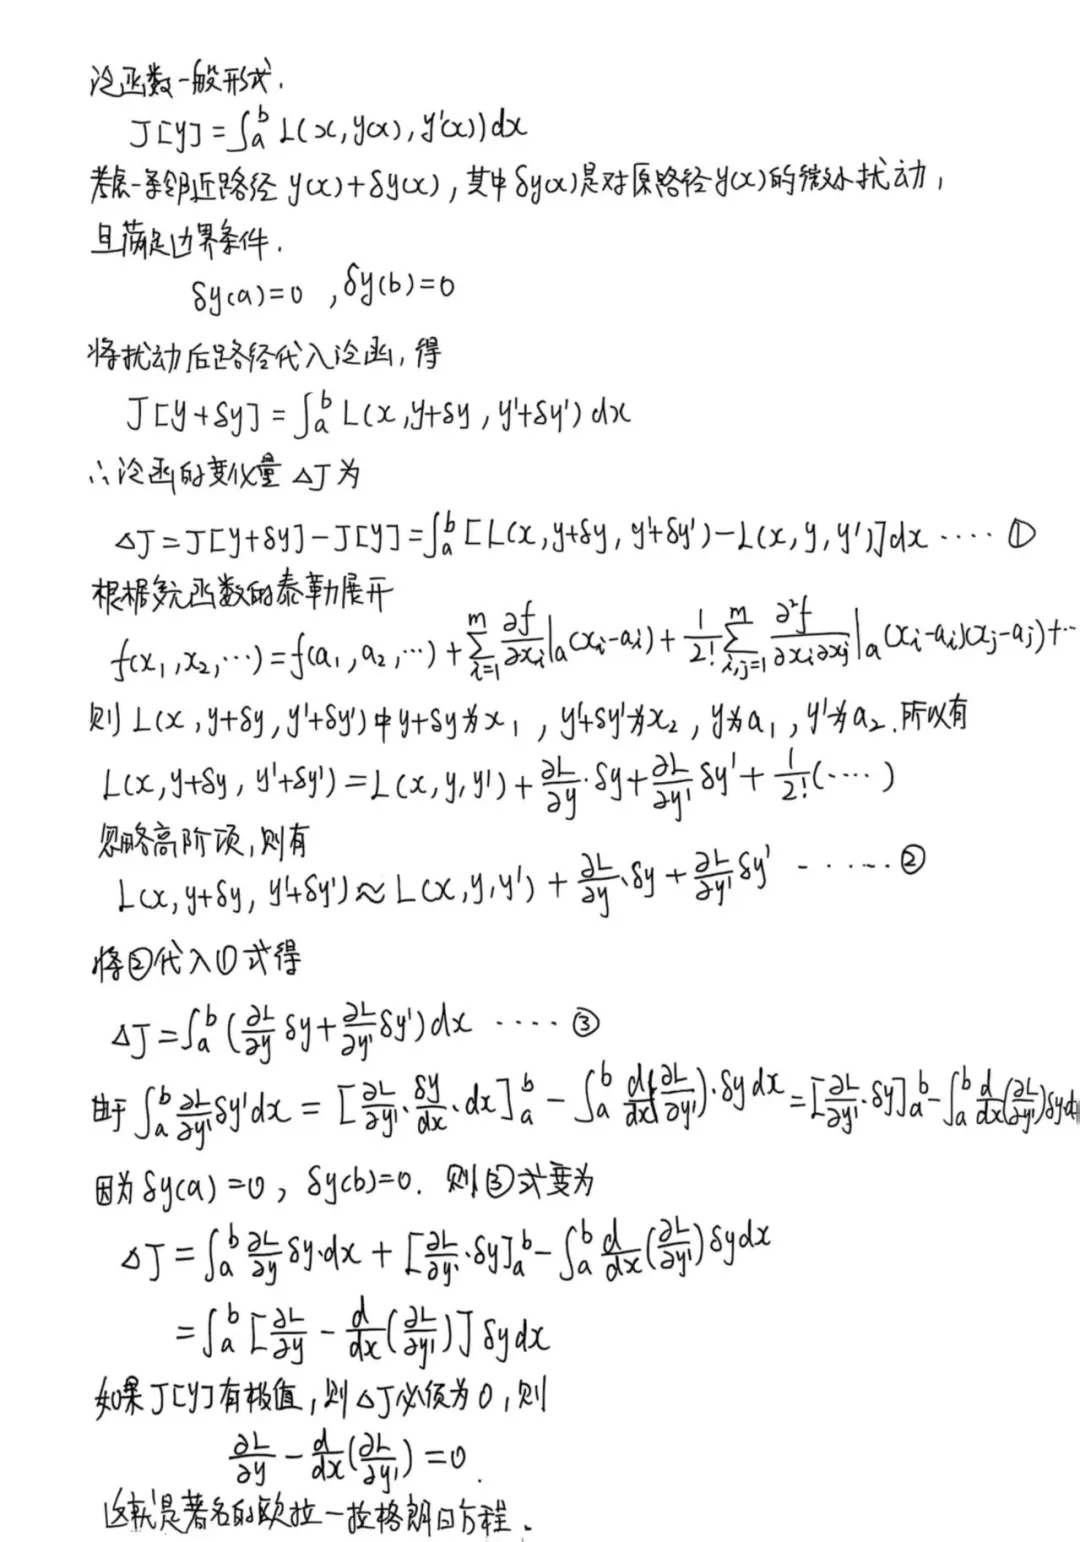 泛函数一般形式.
J[y]=∫ₐᵇ L(x,y(x),y'(x))dx
考虑一条邻近路径 y(x)+δy(x),其中δy(x)是对原路径y(x)的微小扰动,
且满足边界条件.
δy(a)=0 ,δy(b)=0
将扰动后路径代入泛函,得
J[y+δy]=∫ₐᵇ L(x,y+δy,y'+δy')dx
∴泛函的变化量 △J为
△J=J[y+δy]-J[y]=∫ₐᵇ[L(x,y+δy,y'+δy')-L(x,y,y')]dx ····①
根据多元函数的泰勒展开
f(x₁,x₂,···)=f(a₁,a₂,···)+∑ᵢ₌₁ᵐ ∂f/∂xᵢ|ₐ(xᵢ-aᵢ)+1/2! ∑ᵢ,ⱼ₌₁ᵐ ∂²f/∂xᵢ∂xⱼ|ₐ(xᵢ-aᵢ)(xⱼ-aⱼ)+···
则L(x,y+δy,y'+δy')中y+δy为x₁,y'+δy'为x₂,y为a₁,y'为a₂.所以有
L(x,y+δy,y'+δy')=L(x,y,y')+∂L/∂y·δy+∂L/∂y' δy'+1/2!(····)
忽略高阶项,则有
L(x,y+δy,y'+δy')≈L(x,y,y')+∂L/∂y·δy+∂L/∂y' δy' ······②
将②代入①式得
△J=∫ₐᵇ(∂L/∂y δy+∂L/∂y' δy')dx ····③
由于∫ₐᵇ ∂L/∂y' δy'dx=[∂L/∂y'·δy/dx·dx]ₐᵇ-∫ₐᵇ d/dx(∂L/∂y')·δydx=[∂L/∂y'·δy]ₐᵇ-∫ₐᵇ d/dx(∂L/∂y')δyd
因为δy(a)=0,δy(b)=0. 则③式变为
△J=∫ₐᵇ ∂L/∂y δy·dx+[∂L/∂y'·δy]ₐᵇ-∫ₐᵇ d/dx(∂L/∂y')δydx
=∫ₐᵇ[∂L/∂y-d/dx(∂L/∂y')]δydx
如果J[y]有极值,则△J必须为0,则
∂L/∂y-d/dx(∂L/∂y')=0.
这就是著名的欧拉-拉格朗日方程.